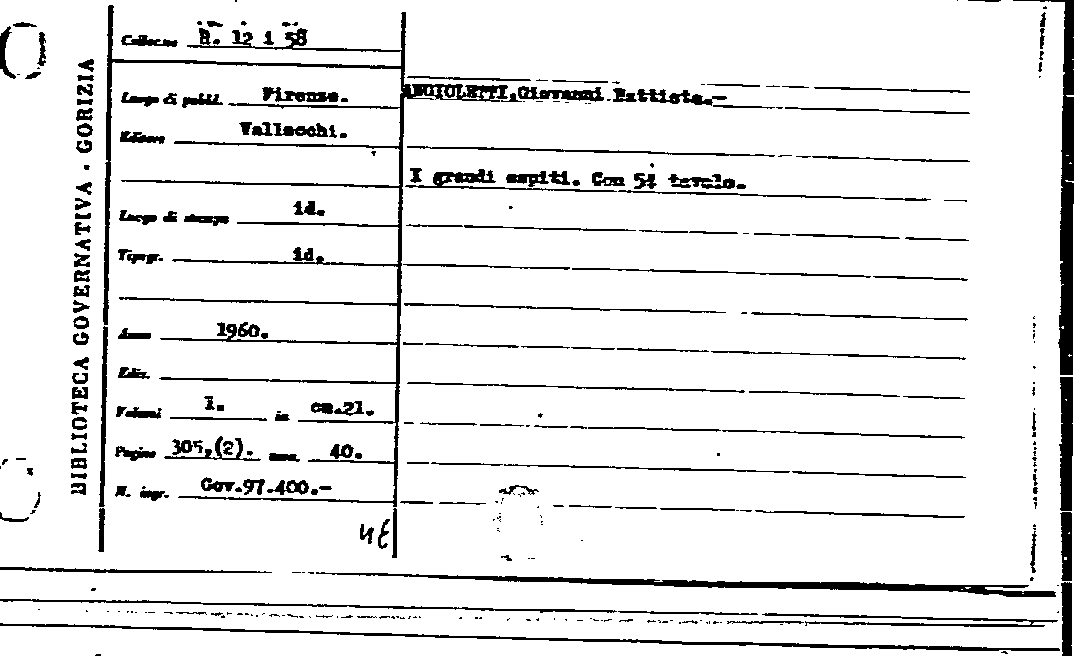 BIBLIOTECA GOVERNATIVA . GORIZIA
Colloc.ne R. 12 i 58
Luogo di pubbl. Firenze.
Editore Vallecchi.
Luogo di stampa id.
Tipogr. id.
Anno 1960.
Ediz.
Volumi 1. in cm.21.
Pagine 305,(2). 40.
N. ingr. Gov.97.400.-
ANGIOLETTI,Giovanni Battista.-
I grandi ospiti. Con 54 tavole.